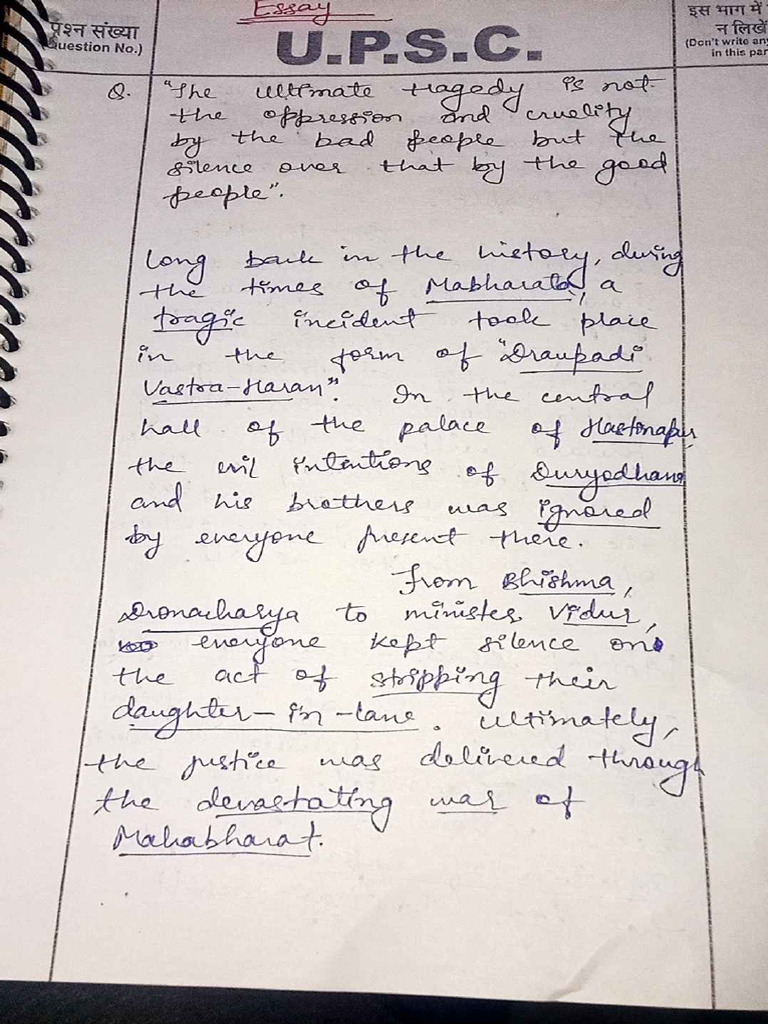 Essay
प्रश्न संख्या
(Question No.)
U.P.S.C.
इस भाग में
न लिखें
(Don't write any
in this par
Q. "The ultimate tragedy is not
the oppression and cruelity
by the bad people but the
silence over that by the good
people".
Long back in the history, during
the times of Mabharata, a
tragic incident took place
in the form of "Draupadi
Vastra-Haran". In the central
hall of the palace of Hastinapur
the evil intentions of Duryodhana
and his brothers was ignored
by everyone present there.
From Bhishma,
Dronacharya to minister Vidur,
everyone kept silence on
the act of stripping their
daughter-in-lane. Ultimately,
the justice was delivered through
the devastating war of
Mahabharat.